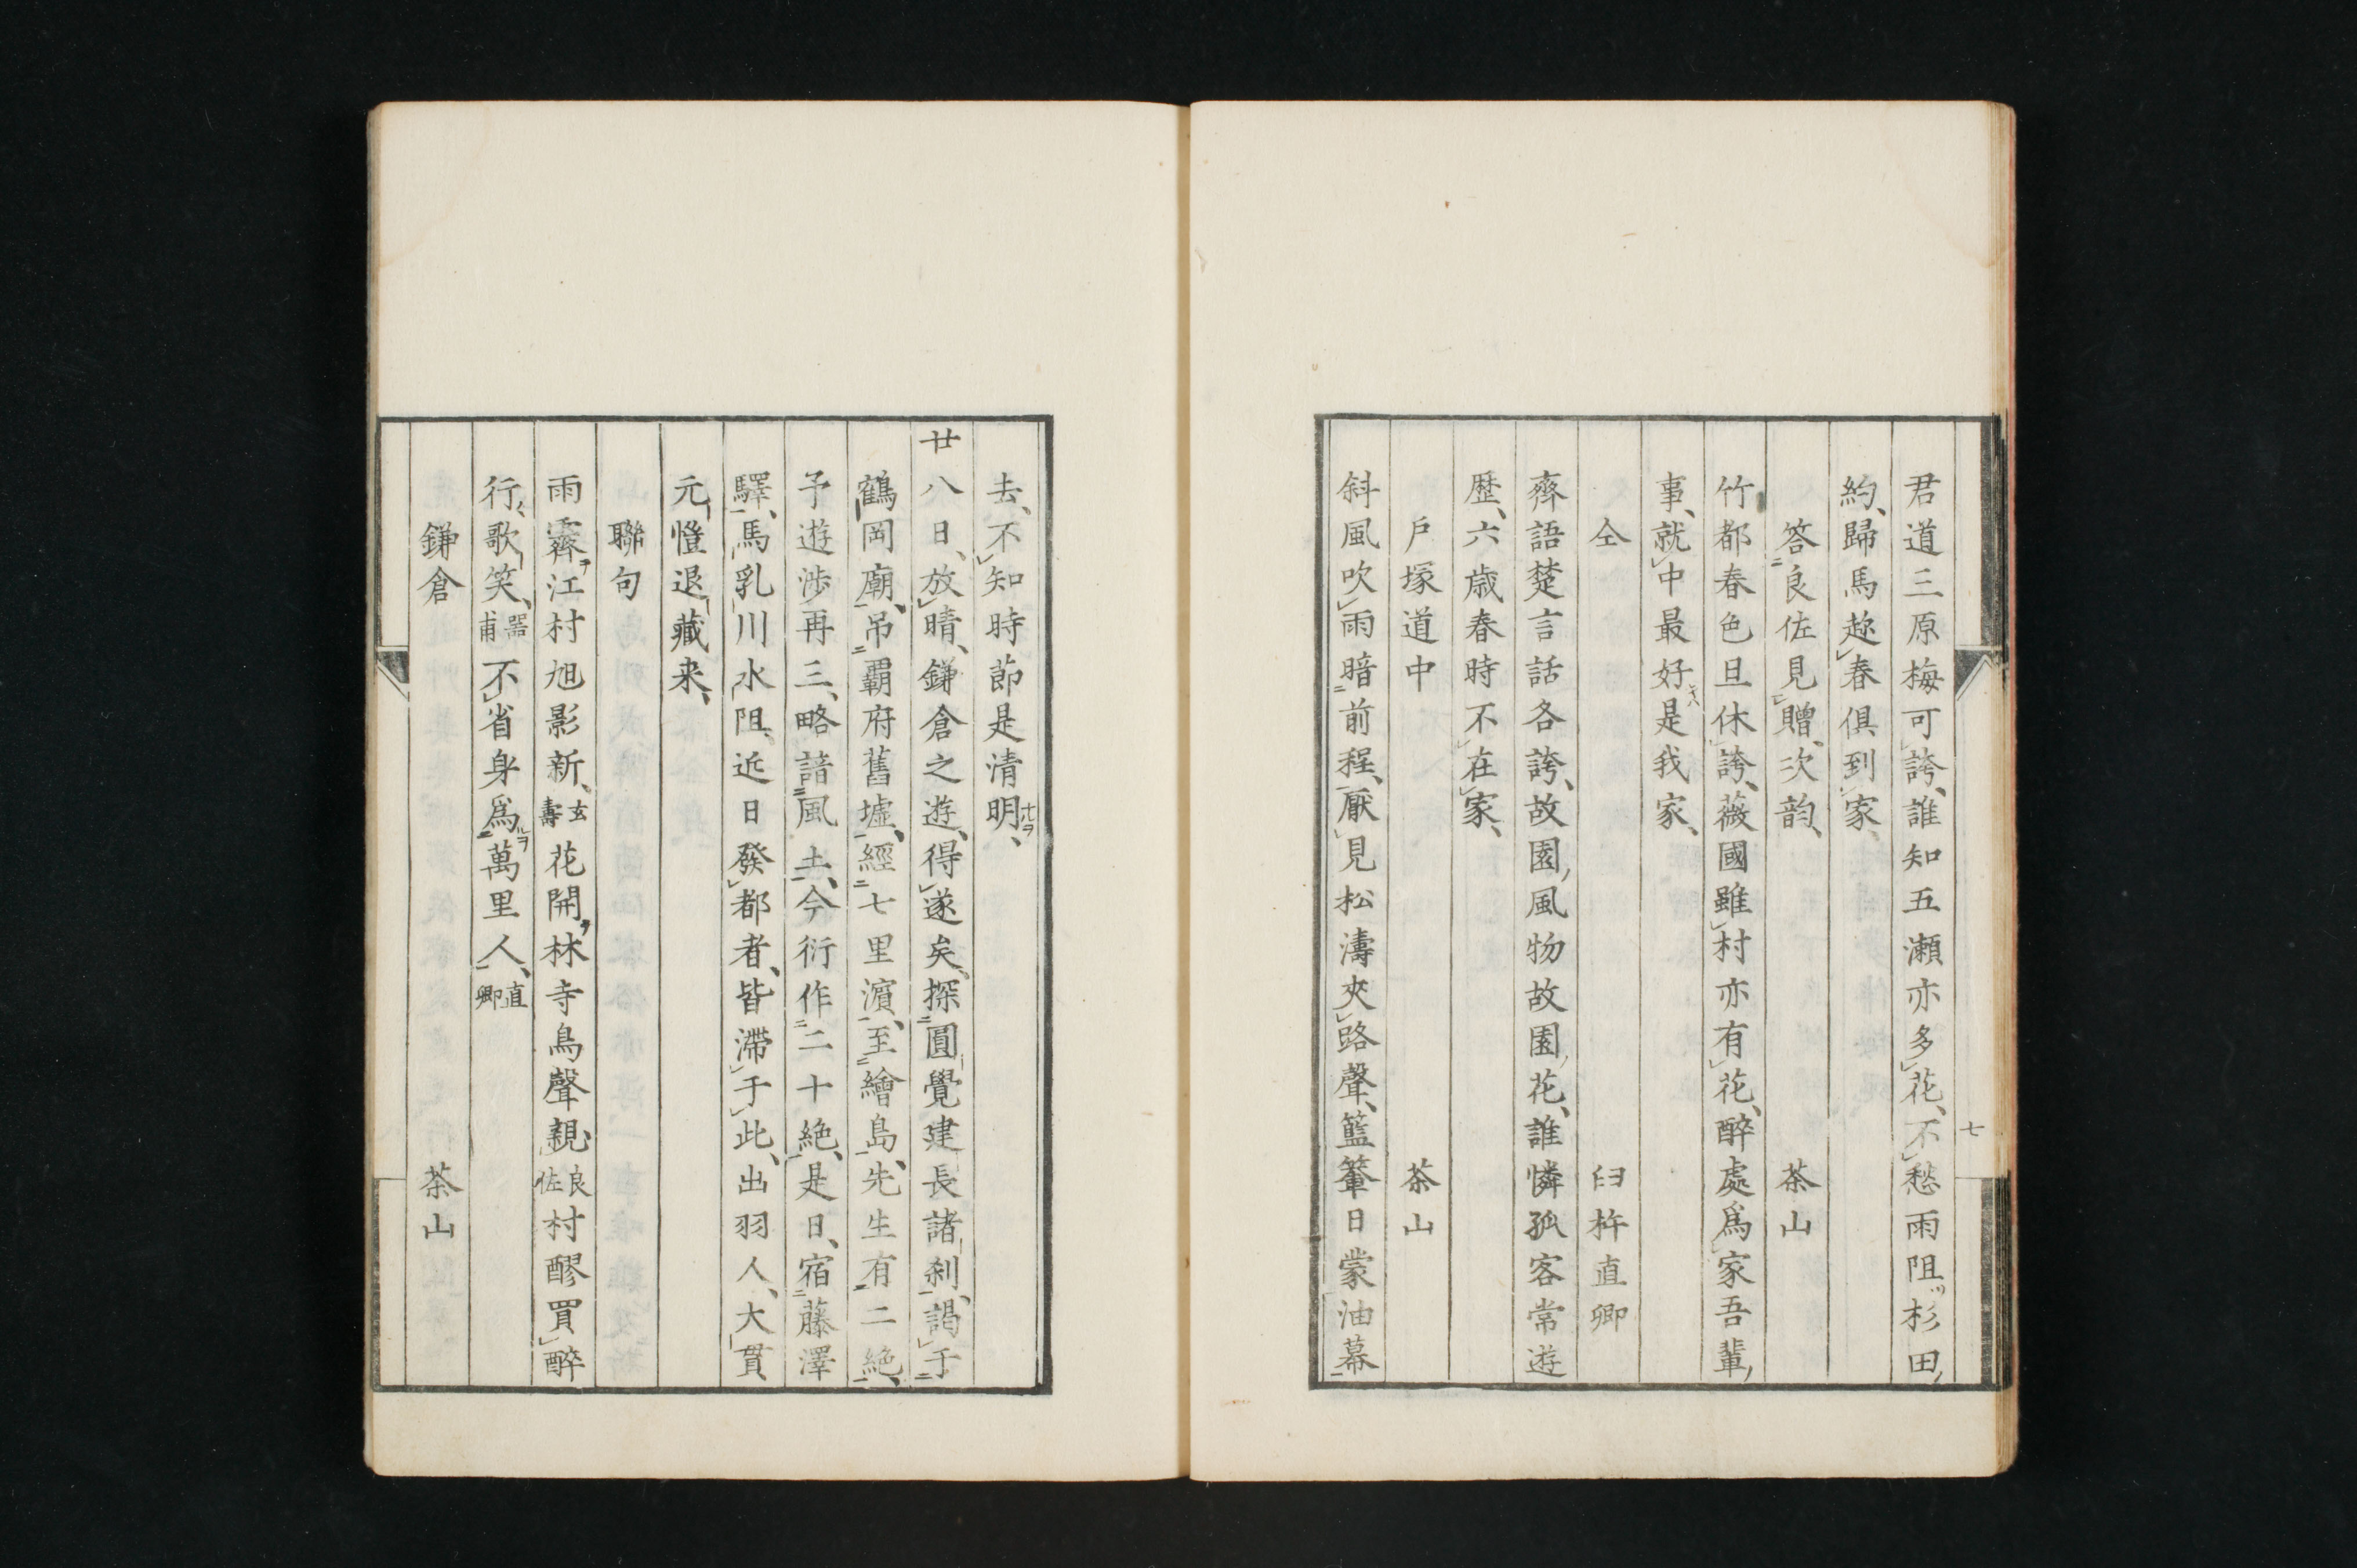 君道三原梅可誇、誰知五瀬亦多花、不愁雨阻杉田
約、歸馬趂春俱到家、
答良佐見贈、次韵、 茶山
竹都春色旦休誇、薇國雖村亦有花、醉處爲家吾輩
事、就中最好是我家、
仝 臼杵直卿
齊語楚言話各誇、故園風物故園花、誰憐孤客常遊
歷、六歳春時不在家、
戶塚道中 茶山
斜風吹雨暗前程、厭見松濤夾路聲、籃轝日蒙油幕
七
去、不知時節是清明、
廿八日、放晴、鎌倉之遊、得遂矣、探圓覺建長諸刹、謁于
鶴岡廟、吊覇府舊墟、經七里濵、至繪島、先生有二絶、
予遊渉再三、略諳風土、今衍作二十絶、是日、宿藤澤
驛、馬乳川水阻、近日發都者、皆滯于此、出羽人、大貫
元憻退藏来、
聯句
雨霽江村旭影新、玄壽花開林寺鳥聲親、良佐村醪買醉
行歌笑、器甫不省身爲萬里人、直卿
鎌倉 茶山